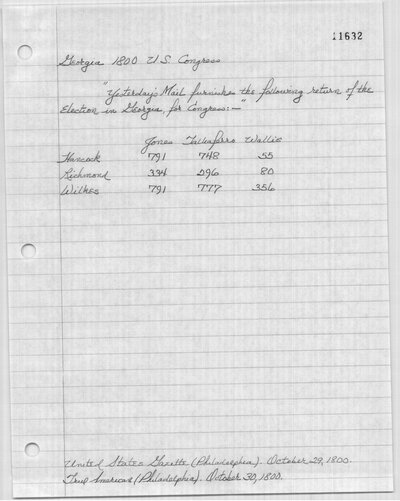 11632
Georgia 1800 U.S. Congress
"Yesterday's Mail furnishes the following return of the
Election in Georgia, for Congress:—"
Jones Taliaferro Wallis
Hancock 791 748 55
Richmond 334 296 80
Wilkes 791 777 356
United States Gazette (Philadelphia). October 29, 1800.
True American (Philadelphia). October 30, 1800.